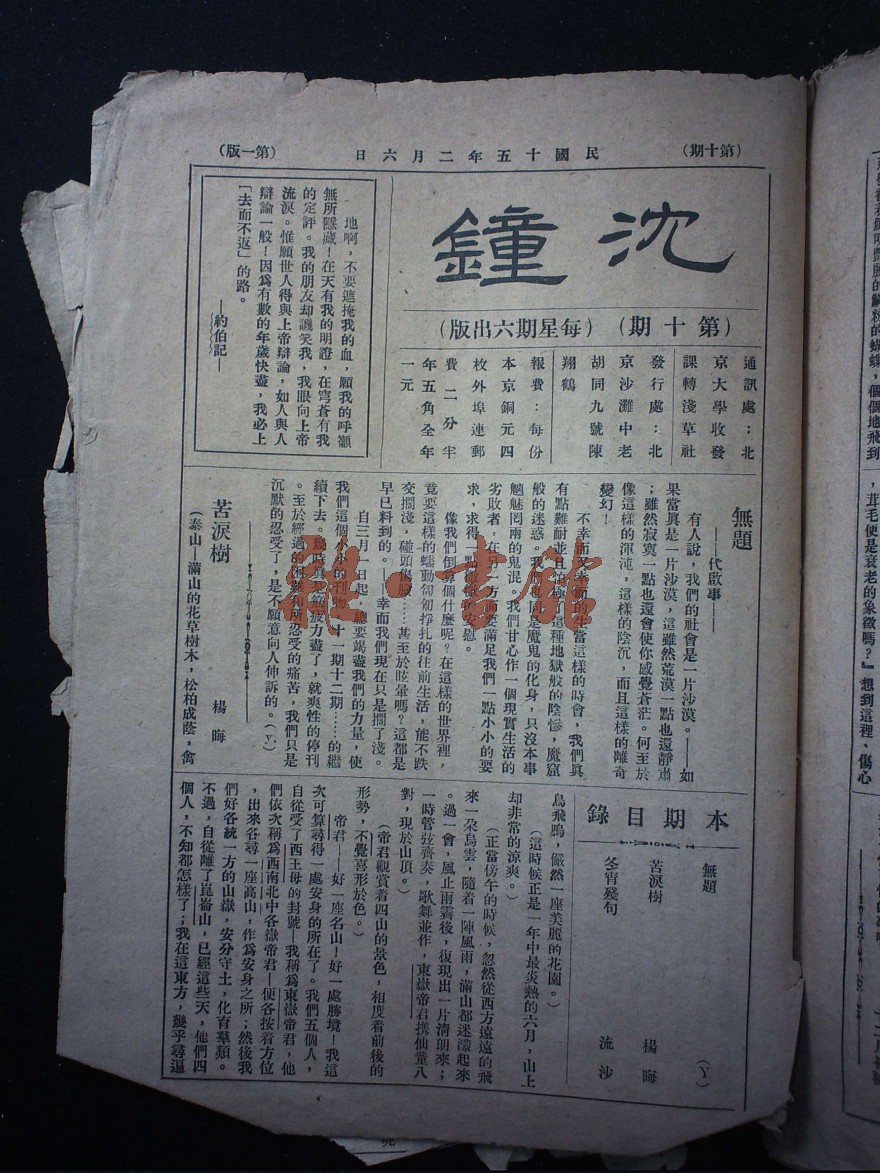 （第十期）
民國十五年二月六日
（第一版）
沈鐘
（第十期）（每星期六出版）
通訊處：北
京大學收發
課轉淺草社
發行處：北
京沙灘中老
胡同九號陳
翔鶴
報費：每份
本京銅元四
枚外埠連郵
費二分半
年五角全年
一元
地啊，不要遮掩我的血，願我的呼籲
無所隱藏！在天有我的明證，在穹蒼有我
的定評。我的朋友却譏笑我，我眼向上帝
流淚。惟願世人得與上帝辯論，如人與人
辯論一般！因爲有數的年歲快盡，我必上
「去而不返」的路。
—約伯記—
無題
——代啟事——
有人說，我們的社會是一片沙漠。——如
果當真是一片沙漠，這雖然荒漠一點也還靜肅
；雖然寂寞一點也還會使你感覺蒼茫。何至於
像這樣的渾沌，這樣的陰沉，而且這樣的離奇
變幻！
不幸而又幸而的生當這樣的時會，我們眞
有點難耐並且
這種地獄般的陰慘，魔窟
般的迷惑。我們
是魔鬼的化身，只沒本事
魑魅罔兩的鬼混。我們甘心作一個現實生活的
劣敗者，在另一方面更滿足我們一點小小的要
求，求得一點
的安慰。
像我們倒算個什麼呢？在這樣的世界裡，
竟要這樣的蠕動匍匐掙扎的往前生活，能不跌
交擱淺，碰頭傷腦……甚至於眩暈嗎？這都是
早已料到的。——幸而我們現在只是擱了淺。
自三月一日起，總要竭盡我們的力量，使
我們這個小小的刊物，十一期十二期……的繼
續下去。幾時眞是筋疲力盡了，就爽性的停刊
。至於經過的困難和所忍受的痛苦，我們只是
沉默的忍受了，是不願意向人伸訴的。（Y）
苦淚樹
楊晦
（泰山—滿山的花草樹木，松柏成蔭，禽
本期目錄
無題
（Y）
苦淚樹
楊晦
冬宵殘句
流沙
鳥飛鳴，儼然一座美麗的花園。）
（這時候正是一年中最炎熱的六月，山上
却非常的涼爽。）
（正當傍午的時候，忽然從西方遠遠的飛
來一朶烏雲，隨着一陣風雨，滿山都迷濛起來
。過一會，風止雨霽後，復現出一片清朗來；
一時管弦齊奏，歌舞並作，東嶽帝君携仙童八
對，現於山頂。）
（帝君觀賞着四山的景色，相度着前後的
形勢，不覺喜形於色。）
帝君——好一座名山！好一處勝境！我這
次可算尋得一處安身的所在了。我們五個人，
自從受了西王母的封號—我稱爲東嶽帝君，他
們依次稱爲西南北中各嶽帝君—便各按着方位
，出來各尋一座高山，作爲安身之所；然後我
們好各統一方的山嶽，安分守土，化育羣類。
不過，自從離了崑崙山，已經這些天，他們四
個人，不知都怎樣了；我在這東方，幾乎尋遍
個個地飛到
，茸毛便是衰老的象徵嗎？』想到這裡、傷心